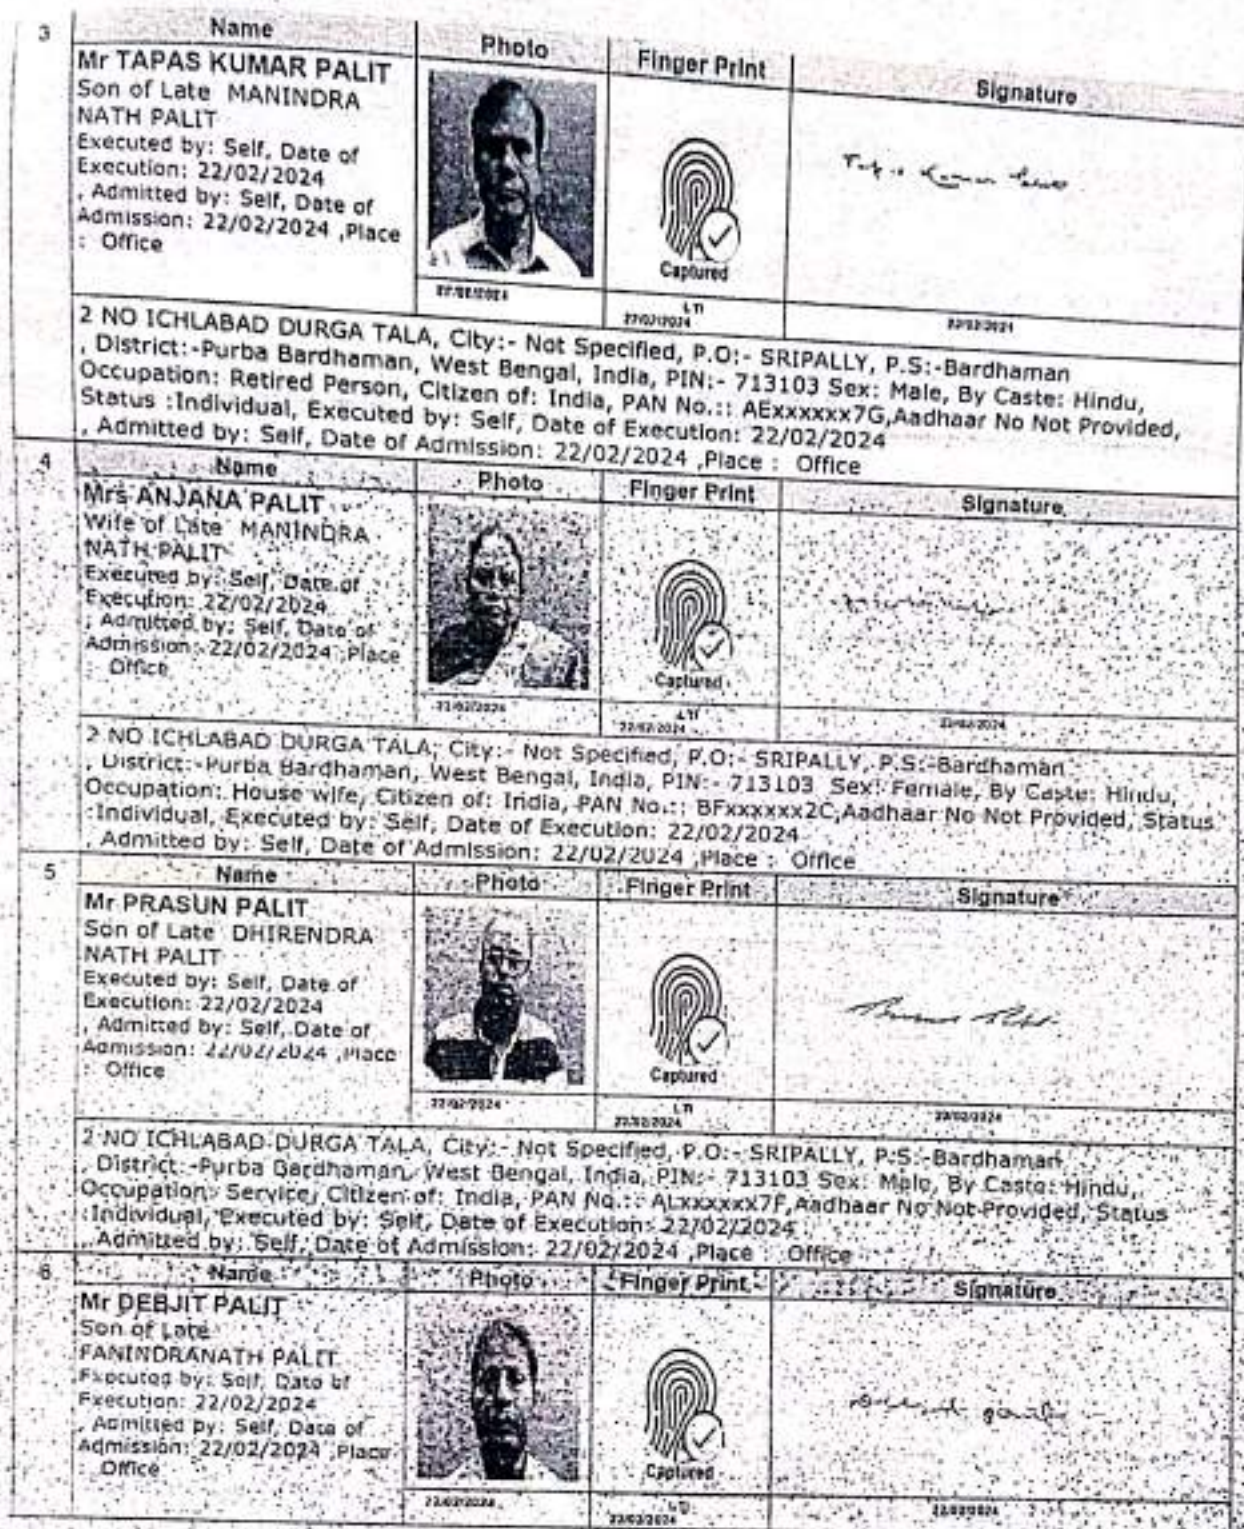 3
Name
Photo
Finger Print
Signature
Mr TAPAS KUMAR PALIT
Son of Late MANINDRA
NATH PALIT
Executed by: Self, Date of
Execution: 22/02/2024
, Admitted by: Self, Date of
Admission: 22/02/2024 ,Place
: Office
Captured
22/02/2024
LTI
22/02/2024
22/02/2024
2 NO ICHLABAD DURGA TALA, City:- Not Specified, P.O:- SRIPALLY, P.S:-Bardhaman
, District:-Purba Bardhaman, West Bengal, India, PIN:- 713103 Sex: Male, By Caste: Hindu,
Occupation: Retired Person, Citizen of: India, PAN No.:: AExxxxxx7G,Aadhaar No Not Provided,
Status :Individual, Executed by: Self, Date of Execution: 22/02/2024
, Admitted by: Self, Date of Admission: 22/02/2024 ,Place : Office
4
Name
Photo
Finger Print
Signature
Mrs ANJANA PALIT
Wife of Late MANINDRA
NATH PALIT
Executed by: Self, Date of
Execution: 22/02/2024
, Admitted by: Self, Date of
Admission: 22/02/2024 ,Place
: Office
Captured
22/02/2024
LTI
22/02/2024
22/02/2024
2 NO ICHLABAD DURGA TALA, City:- Not Specified, P.O:- SRIPALLY, P.S:-Bardhaman
, District:-Purba Bardhaman, West Bengal, India, PIN:- 713103 Sex: Female, By Caste: Hindu,
Occupation: House wife, Citizen of: India, PAN No.:: BFxxxxxx2C,Aadhaar No Not Provided, Status
:Individual, Executed by: Self, Date of Execution: 22/02/2024
, Admitted by: Self, Date of Admission: 22/02/2024 ,Place : Office
5
Name
Photo
Finger Print
Signature
Mr PRASUN PALIT
Son of Late DHIRENDRA
NATH PALIT
Executed by: Self, Date of
Execution: 22/02/2024
, Admitted by: Self, Date of
Admission: 22/02/2024 ,Place
: Office
Captured
22/02/2024
LTI
22/02/2024
22/02/2024
2 NO ICHLABAD DURGA TALA, City:- Not Specified, P.O:- SRIPALLY, P.S:-Bardhaman
, District:-Purba Bardhaman, West Bengal, India, PIN:- 713103 Sex: Male, By Caste: Hindu,
Occupation: Service, Citizen of: India, PAN No.:: ALxxxxxx7F,Aadhaar No Not Provided, Status
:Individual, Executed by: Self, Date of Execution: 22/02/2024
, Admitted by: Self, Date of Admission: 22/02/2024 ,Place : Office
6
Name
Photo
Finger Print
Signature
Mr DEBJIT PALIT
Son of Late
FANINDRANATH PALIT
Executed by: Self, Date of
Execution: 22/02/2024
, Admitted by: Self, Date of
Admission: 22/02/2024 ,Place
: Office
Captured
22/02/2024
LTI
22/02/2024
22/02/2024